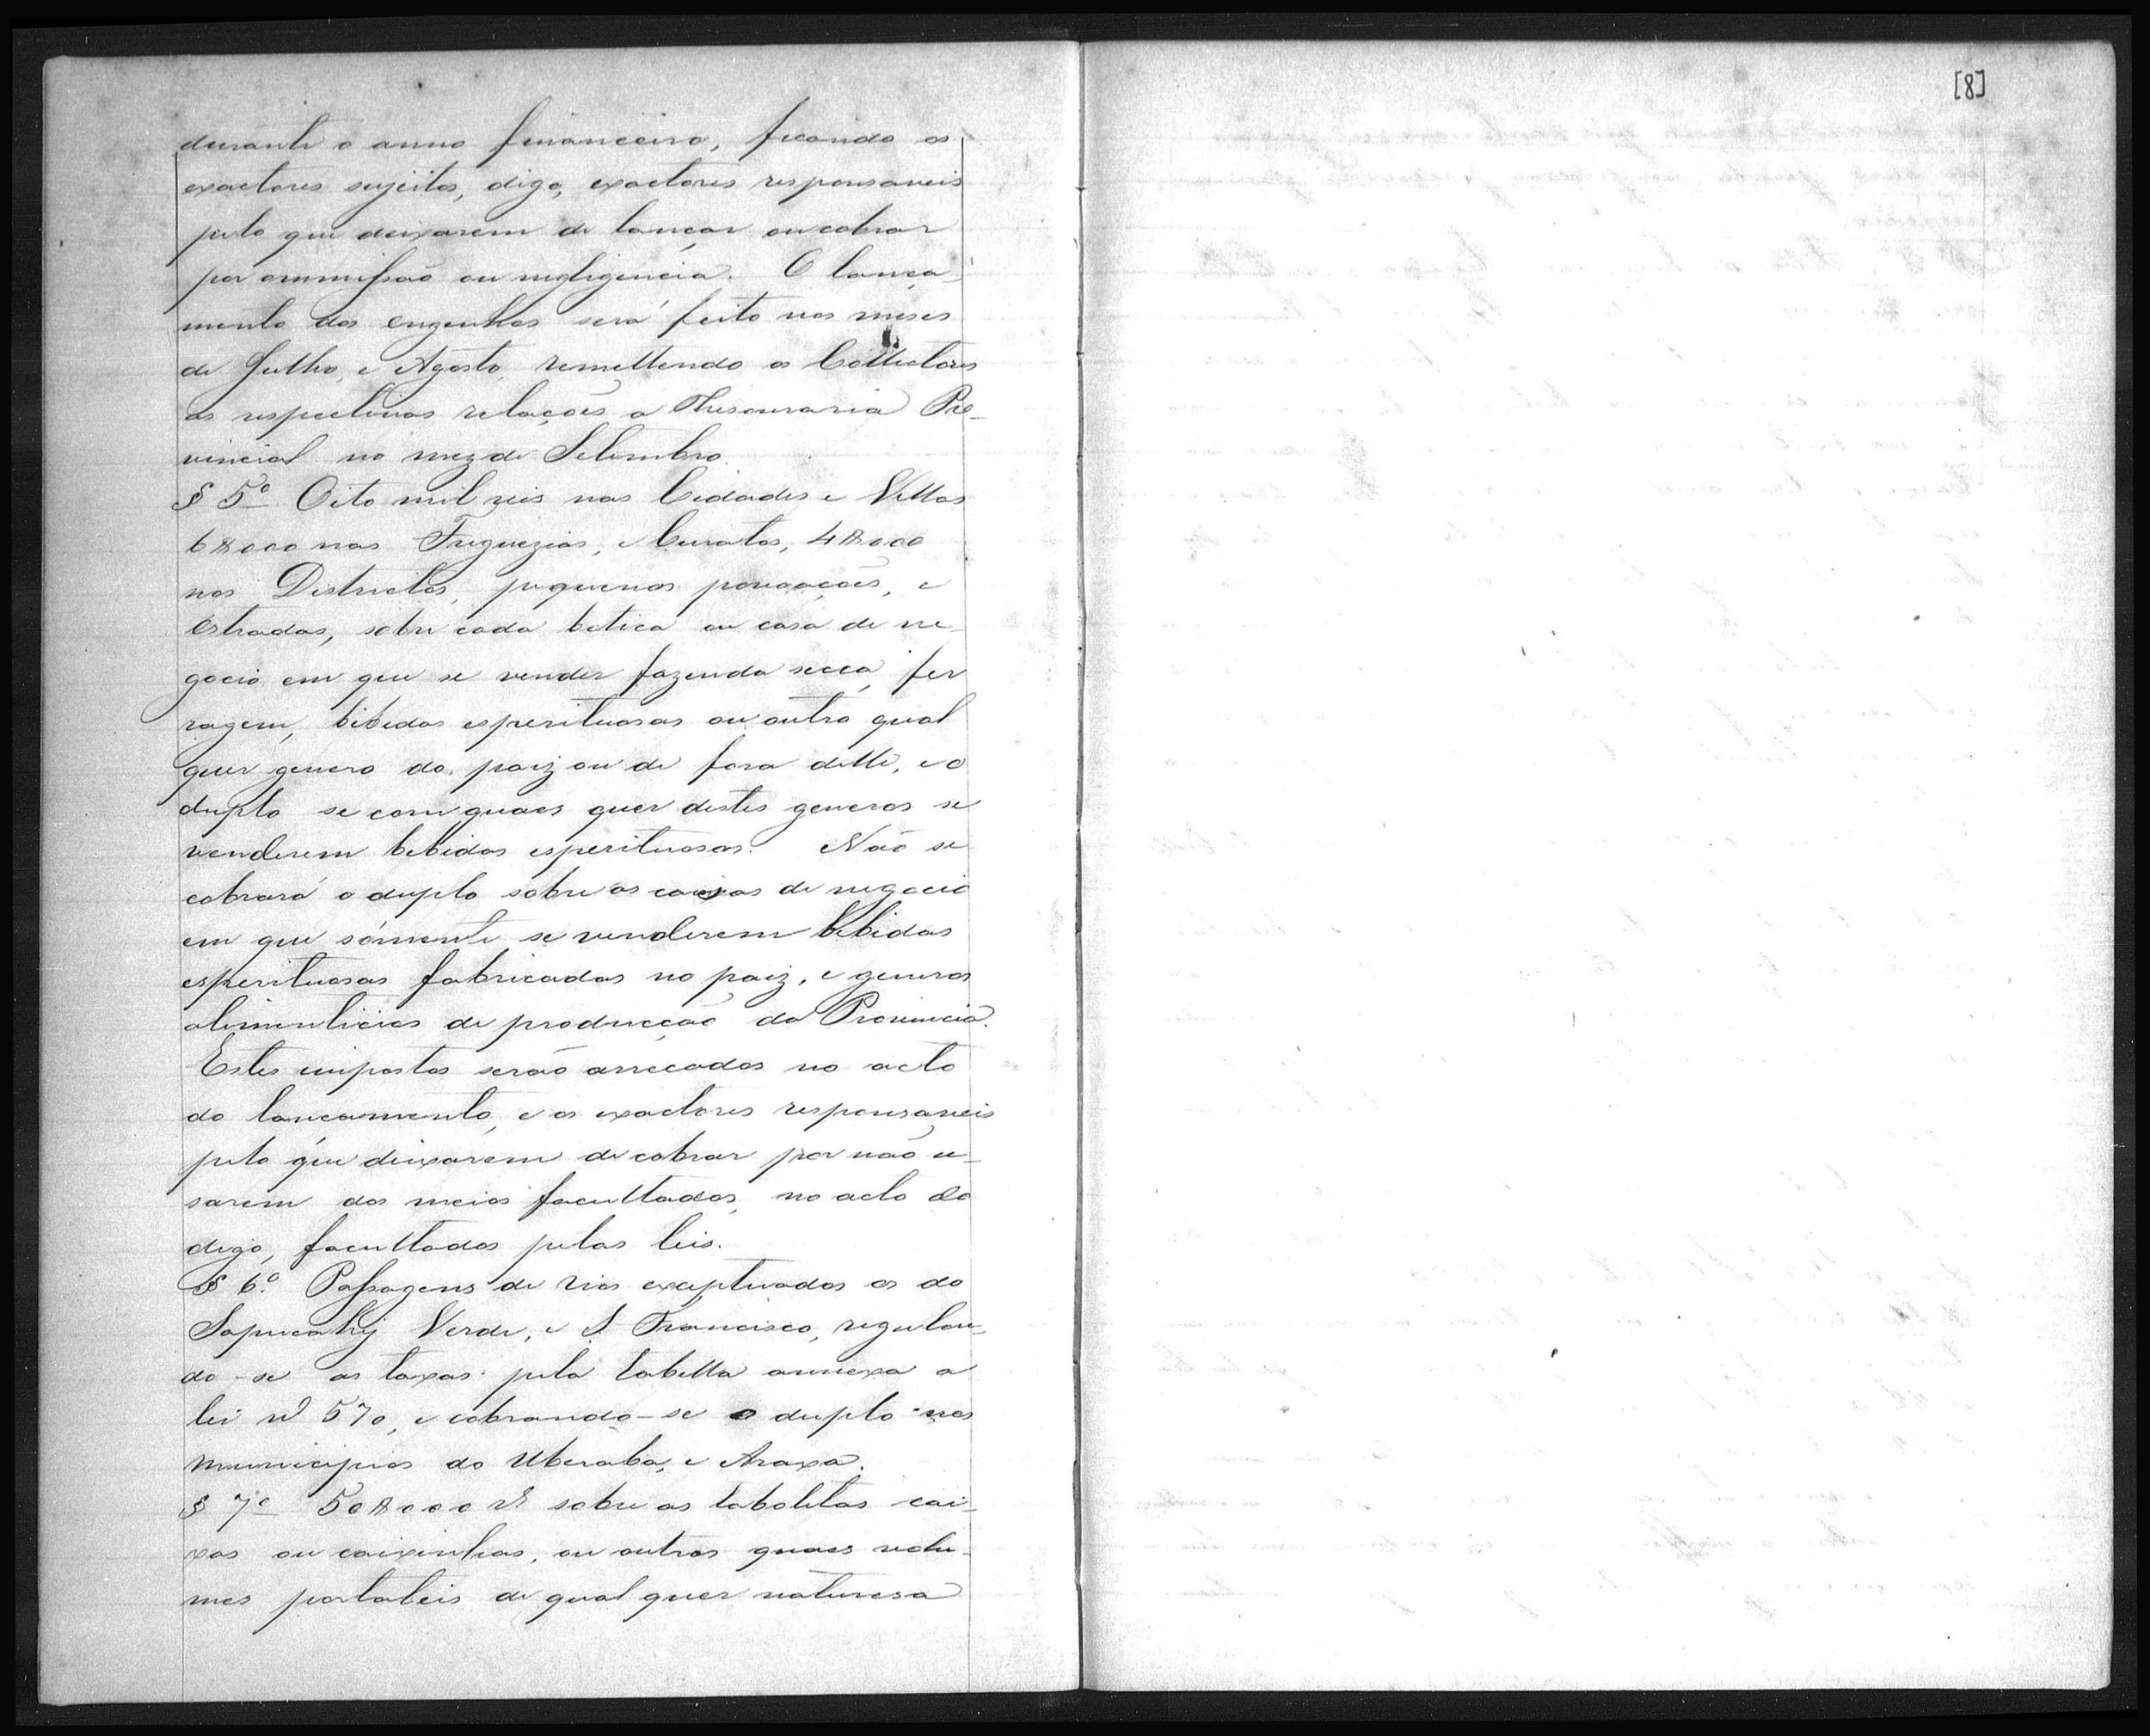 [8]
durante o anno financeiro, ficando os
exactores sujeitos, digo, exactores responsaveis
pelo que deixarem de lançar ou cobrar
por ommissão ou negligencia. O lança-
mento dos engenhos será feito nos meses
de Julho, e Agosto, remettendo os Collectores
as respectivas relações a Thesouraria Pro-
vincial no mez de Setembro.
§ 5º Oito mil reis nas Cidades e Villas
6$000 nas Freguezias, e Curatos, 4$000
nos Districtos, pequenas povoações, e
Estradas, sobre cada botica ou casa de ne-
gocio em que se vender fazenda secca, fer
ragem, bibidas espirituosas ou outro qual
quer genero do paiz ou de fora delle, e o
duplo se com quaes quer destes generos se
venderem bebidas esperituosas. Não se
cobrará o duplo sobre as casas de negocio
em que sómente se venderem bebidas
esperituosas fabricadas no paiz, e generos
alimenticios de producção da Provincia.
Estes impostos serão arrecados no acto
do lancamento, e os exactores responsaveis
pelo que deixarem de cobrar por não u-
sarem dos meios facultados, no acto do
digo, facultados pelas leis.
§ 6º. Passagens de rios exceptuados os do
Sapucahy Verde, e S. Francisco, regulan-
do-se as taxas pela tabella annexa a
lei nº 570, e cobrando-se o duplo nos
municipios do Uberaba, e Araxa.
§ 7º 50$000 rs sobre as taboletas cai-
xas ou caixinhas, ou outros quaes volu-
mes portateis de qual quer naturesa